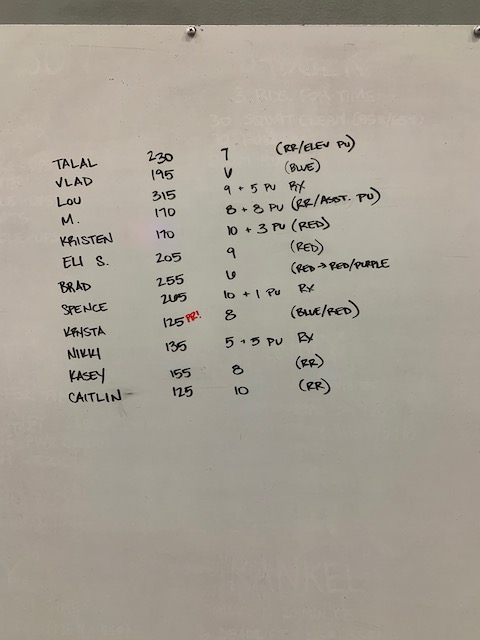 TALAL 230 7 (RR/ELEV PU)
VLAD 195 6 (BLUE)
LOU 315 9 + 5 PU RX
M. 170 8 + 8 PU (RR/ASST. PU)
KRISTEN 170 10 + 3 PU (RED)
ELI S. 205 9 (RED)
BRAD 255 6 (RED → RED/PURPLE
SPENCE 265 10 + 1 PU RX
KRYSTA 125 PR! 8 (BLUE/RED)
NIKKI 135 5 + 5 PU RX
KASEY 155 8 (RR)
CAITLIN 125 10 (RR)
KANKEL